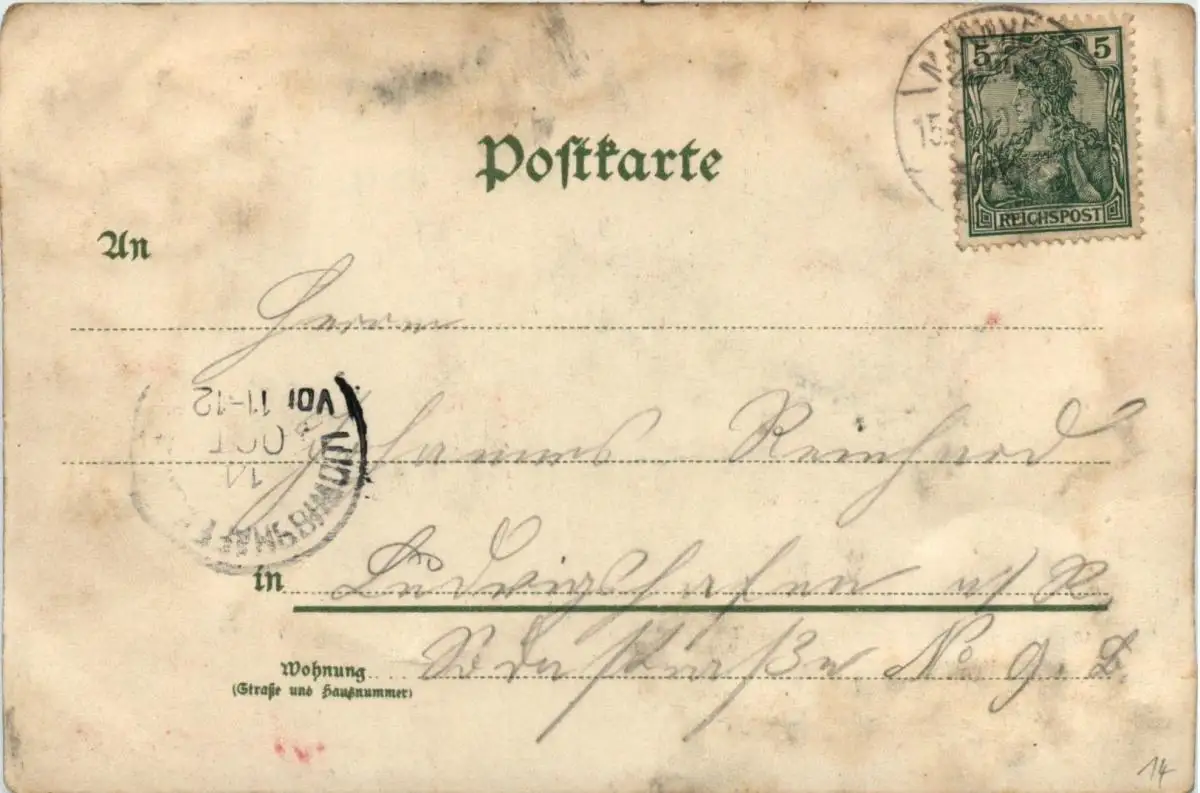 5 5
REICHSPOST
15.
Postkarte
An
Herrn
Johannes Reinhard
VOR 11-12
OCT
14
LUDWIGSHAFEN
in Ludwigshafen a/ R.
Wohnung
No 9.
(Straße und Hausnummer)
14